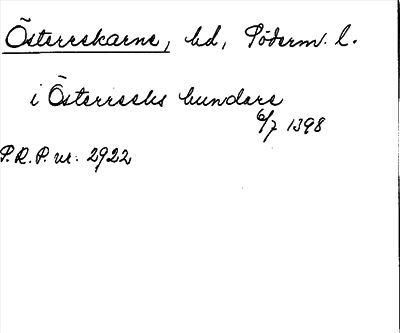 Österrekarne, hd, Söderm. l.
i Österreeks hundare
6/7 1398
P.R.P. nr. 2922